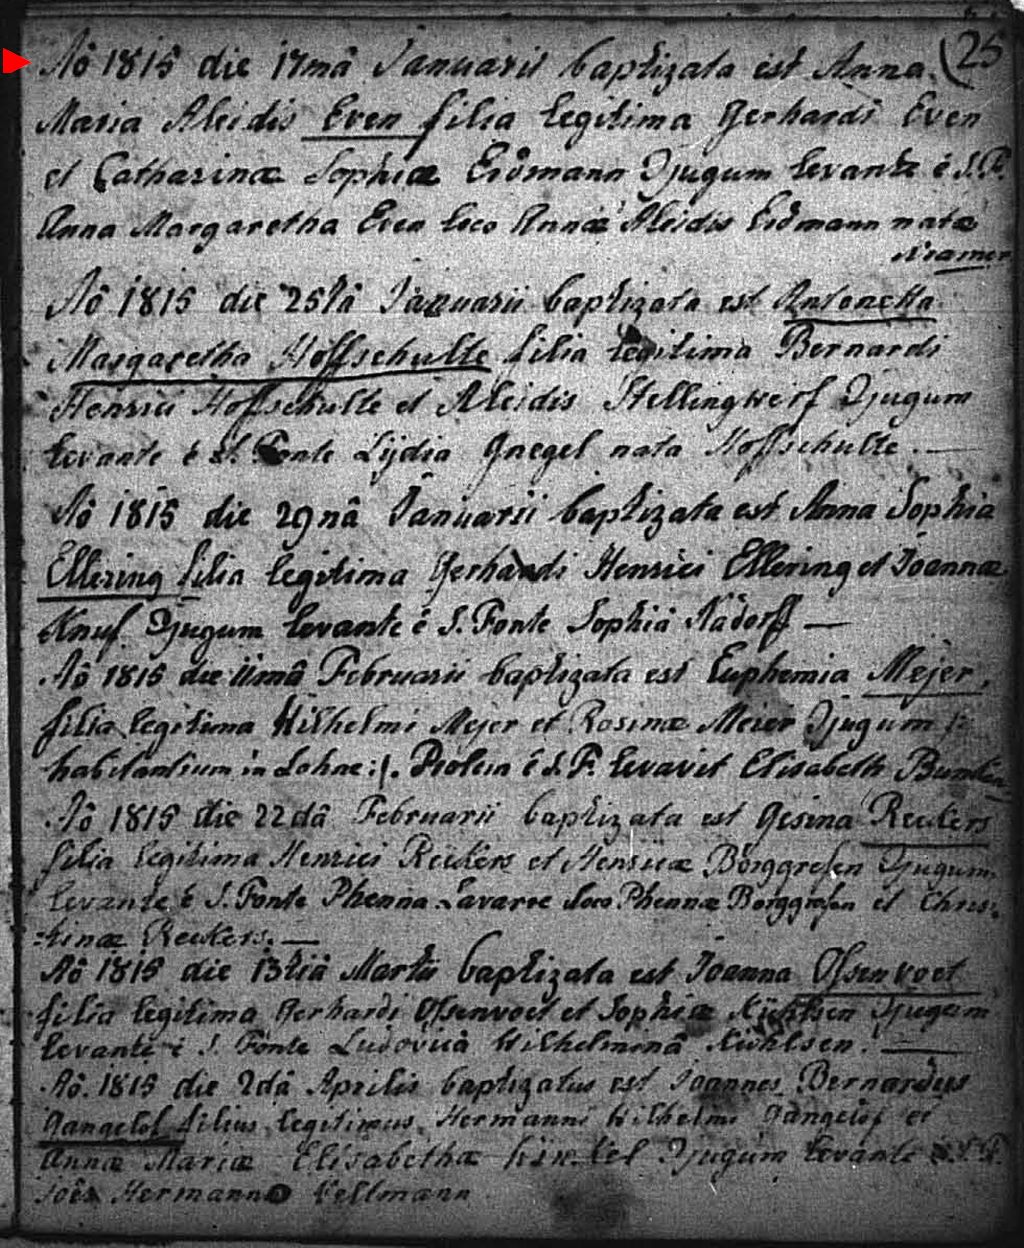 (25
Aô 1815 die 17mâ Januarii baptizata est Anna
Maria Aleidis Even filia legitima Gerhardi Even
et Catharinæ Sophiæ Erdmann Cjugum levante è S. F.
Anna Margaretha Even loco Annæ Aleidis Erdmann natæ
Kramer
Aô 1815 die 25tâ Januarii baptizata est Antonetta
Margaretha Hoffschulte filia legitima Bernardi
Henrici Hoffschulte et Aleidis Stellingwerf Cjugum
levante è S. Fonte Lydia Gnegel nata Hoffschulte. —
Aô 1815 die 29nâ Januarii baptizata est Anna Sophia
Ellering filia legitima Gerhardi Henrici Ellering et Joannæ
Knuf Cjugum levante è S. Fonte Sophiâ Nadorff —
Aô 1815 die 11mâ Februarii baptizata est Euphemia Mejer,
filia legitima Wilhelmi Mejer et Rosinæ Meier Cjugum
habitantium in Lohne :/. Prolem è S. F. levavit Elisabeth
Aô 1815 die 22dâ Februarii baptizata est Gesina Reekers
filia legitima Henrici Reekers et Henricæ Borggrefen Cjugum
levante è S. Fonte Phenna Lavarre loco Phennæ Borggrefen et Chris-
-tinæ Reekers. —
Aô 1815 die 13tiâ Martii baptizata est Joanna Ossenvoet
filia legitima Gerhardi Ossenvoet et Sophiæ Kühlsen Cjugum
levante è S. Fonte Ludovicâ Wilhelminâ Kühlsen. —
Aô. 1815 die 2dâ Aprilis baptizatus est Joannes Bernardus
Gangelof filius legitimus Hermanni Wilhelmi Gangelof et
Annæ Mariæ Elisabethæ Cjugum levante è S. F.
Joês Hermanno Vellmann